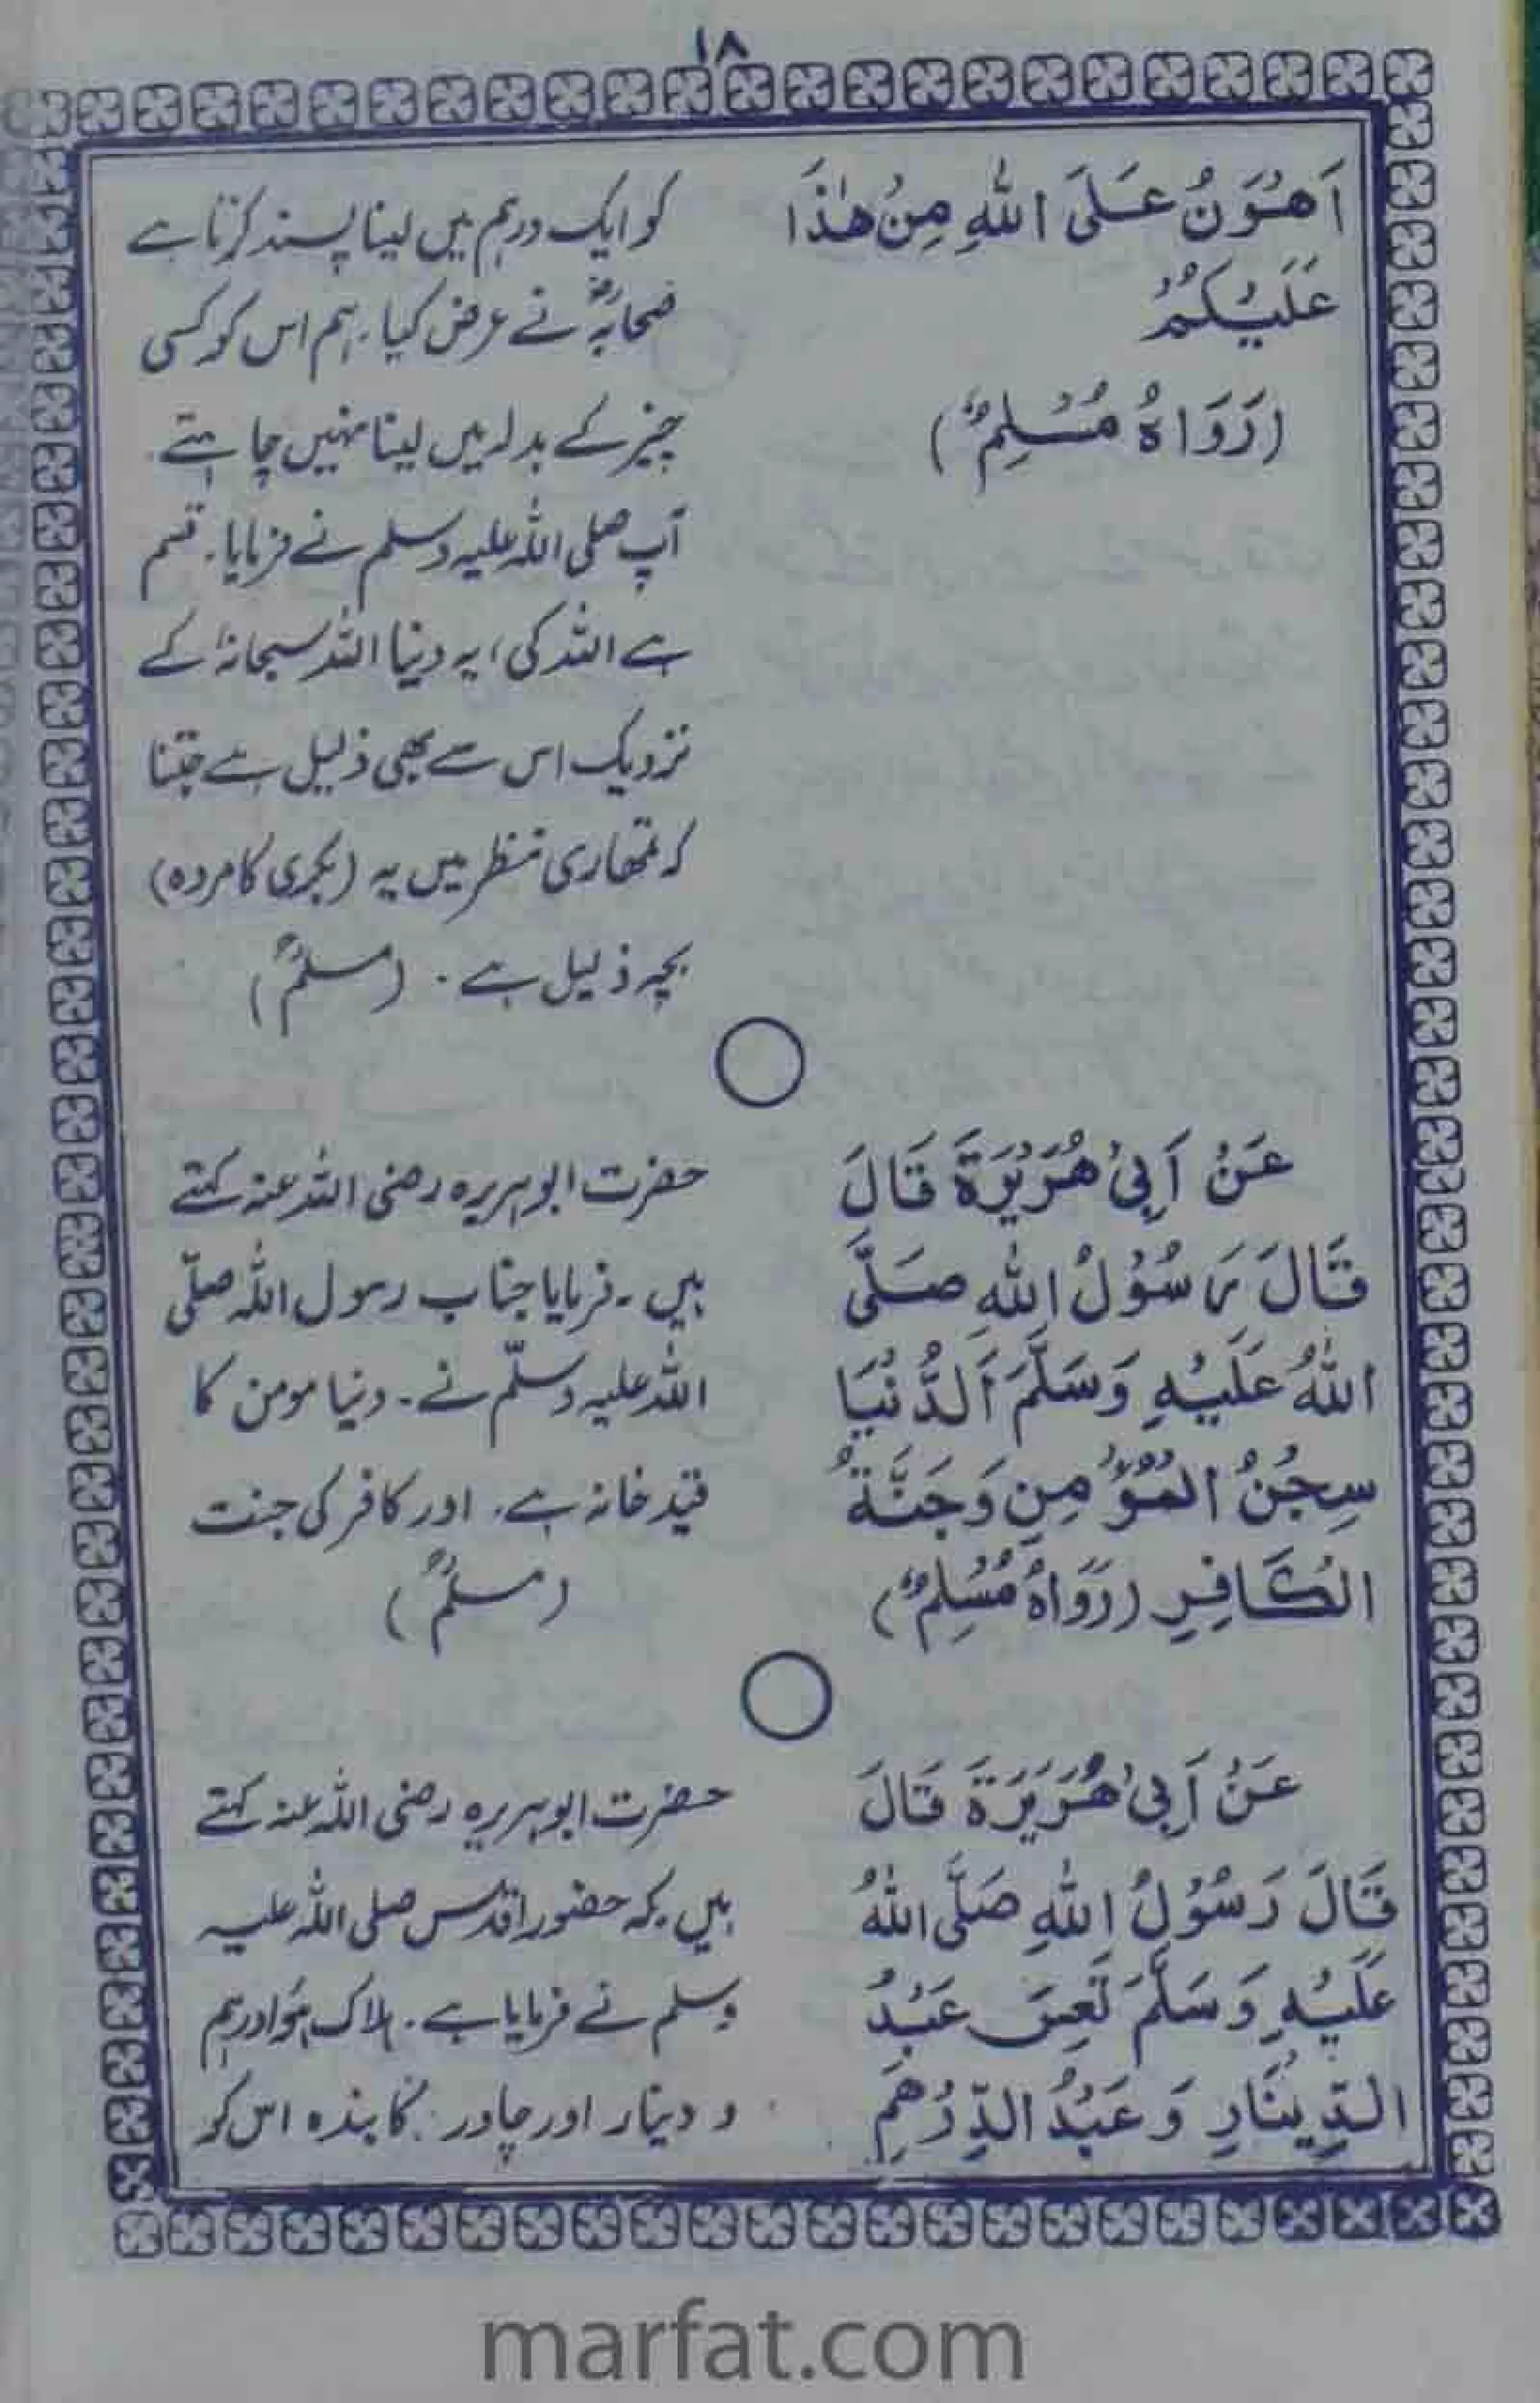 ۱۸
اَهْوَنُ عَلَى اللهِ مِنْ هٰذَا
عَلَيْكُمْ
(رَوَاهُ مُسْلِمٌ)
کو ایک درہم میں لینا پسند کرتا ہے
صحابہؓ نے عرض کیا. ہم اس کو کسی
چیز کے بدلہ میں لینا نہیں چاہتے
آپ صلی اللہ علیہ وسلم نے فرمایا. قسم
ہے اللہ کی، یہ دنیا اللہ سبحانہٗ کے
نزدیک اس سے بھی ذلیل ہے جتنا
کہ تمھاری نظر میں یہ (بکری کا مردہ)
بچہ ذلیل ہے. (مسلمؒ)
عَنْ اَبِيْ هُرَيْرَةَ قَالَ
قَالَ رَسُوْلُ اللهِ صَلَّى
اللهُ عَلَيْهِ وَسَلَّمَ اَلدُّنْيَا
سِجْنُ الْمُؤْمِنِ وَجَنَّةُ
الْكَافِرِ (رَوَاهُ مُسْلِمٌ)
حضرت ابوہریرہ رضی اللہ عنہ کہتے
ہیں۔ فرمایا جناب رسول اللہ صلّی
اللہ علیہ وسلّم نے۔ دنیا مومن کا
قید خانہ ہے. اور کافر کی جنت
(مسلمؒ)
عَنْ اَبِيْ هُرَيْرَةَ قَالَ
قَالَ رَسُوْلُ اللهِ صَلَّى اللهُ
عَلَيْهِ وَسَلَّمَ تَعِسَ عَبْدُ
الدِّيْنَارِ وَعَبْدُ الدِّرْهَمِ
حضرت ابوہریرہ رضی اللہ عنہ کہتے
ہیں کہ حضور اقدس صلی اللہ علیہ
وسلم نے فرمایا ہے. ہلاک ہوا درہم
و دینار اور چادر کا بندہ اس کو
marfat.com